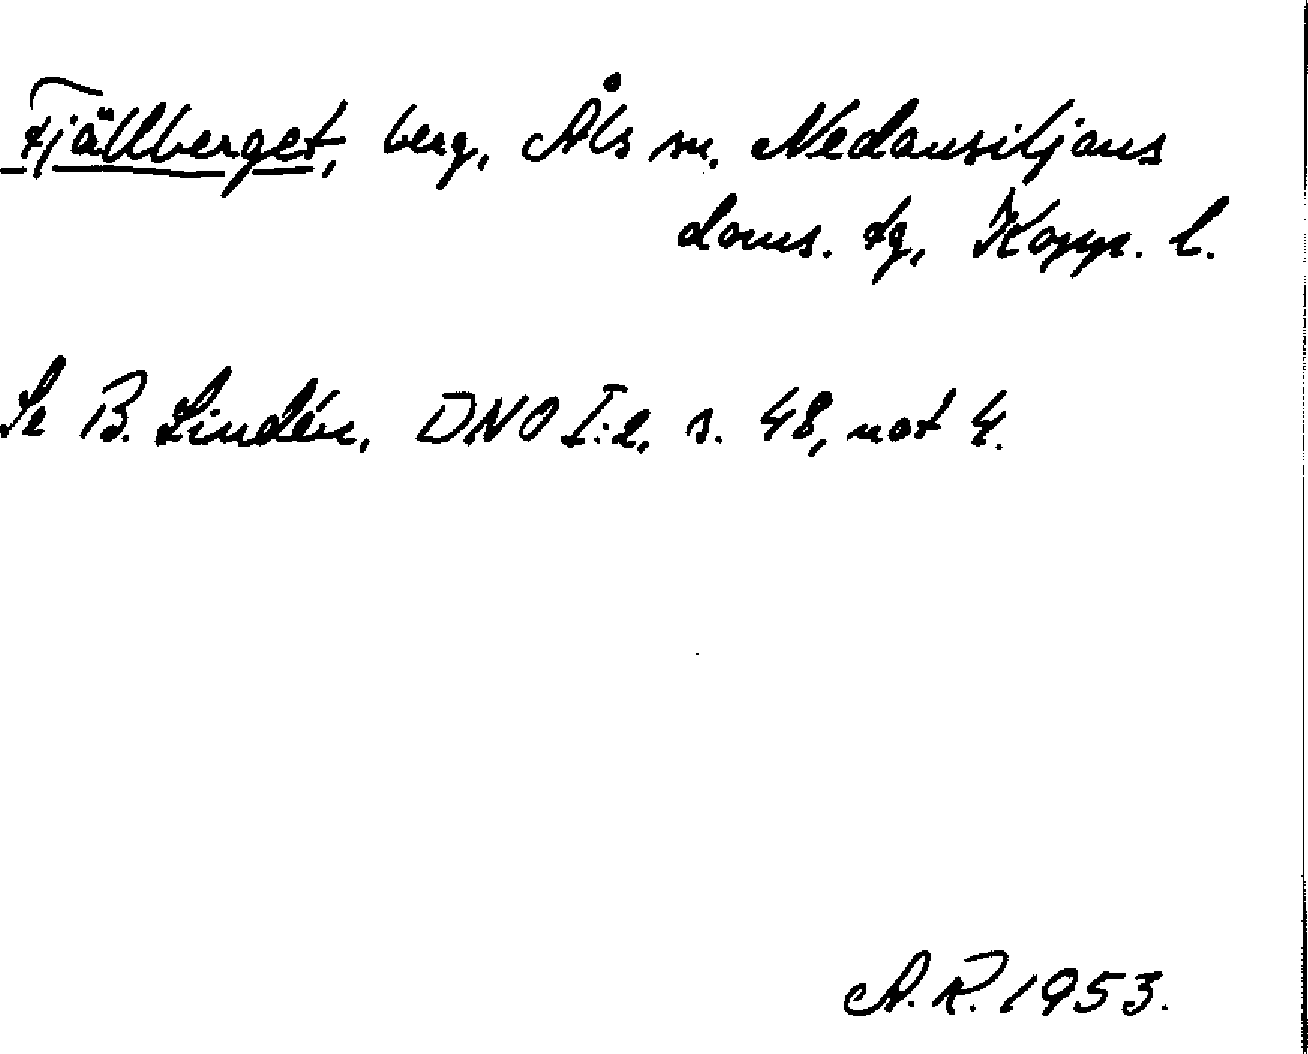 Fjällberget, berg, Åls sn. Nedansiljans
doms. tg, Kopp. l.
Se B. Lindén, DNO I:2, s. 48, not 4.
A.R. 1953.